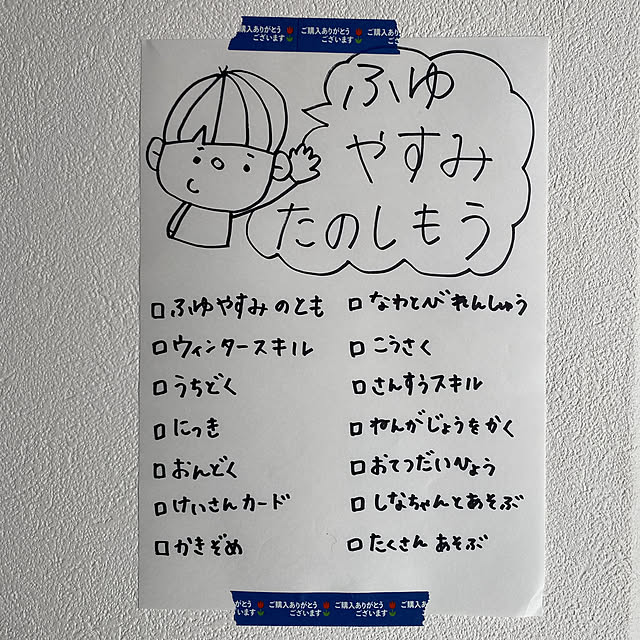 ご購入ありがとう ご購入ありがとう ご購入あり
ございます ございます ござ
ふゆ
やすみ
たのしもう
ふゆやすみのとも
ウィンタースキル
うちどく
にっき
おんどく
けいさんカード
かきぞめ
なわとびれんしゅう
こうさく
さんすうスキル
ねんがじょうをかく
おてつだいひょう
しなちゃんとあそぶ
たくさんあそぶ
がとう ご購入ありがとう ご購入ありがとう ご購入あ
います ございます ございます